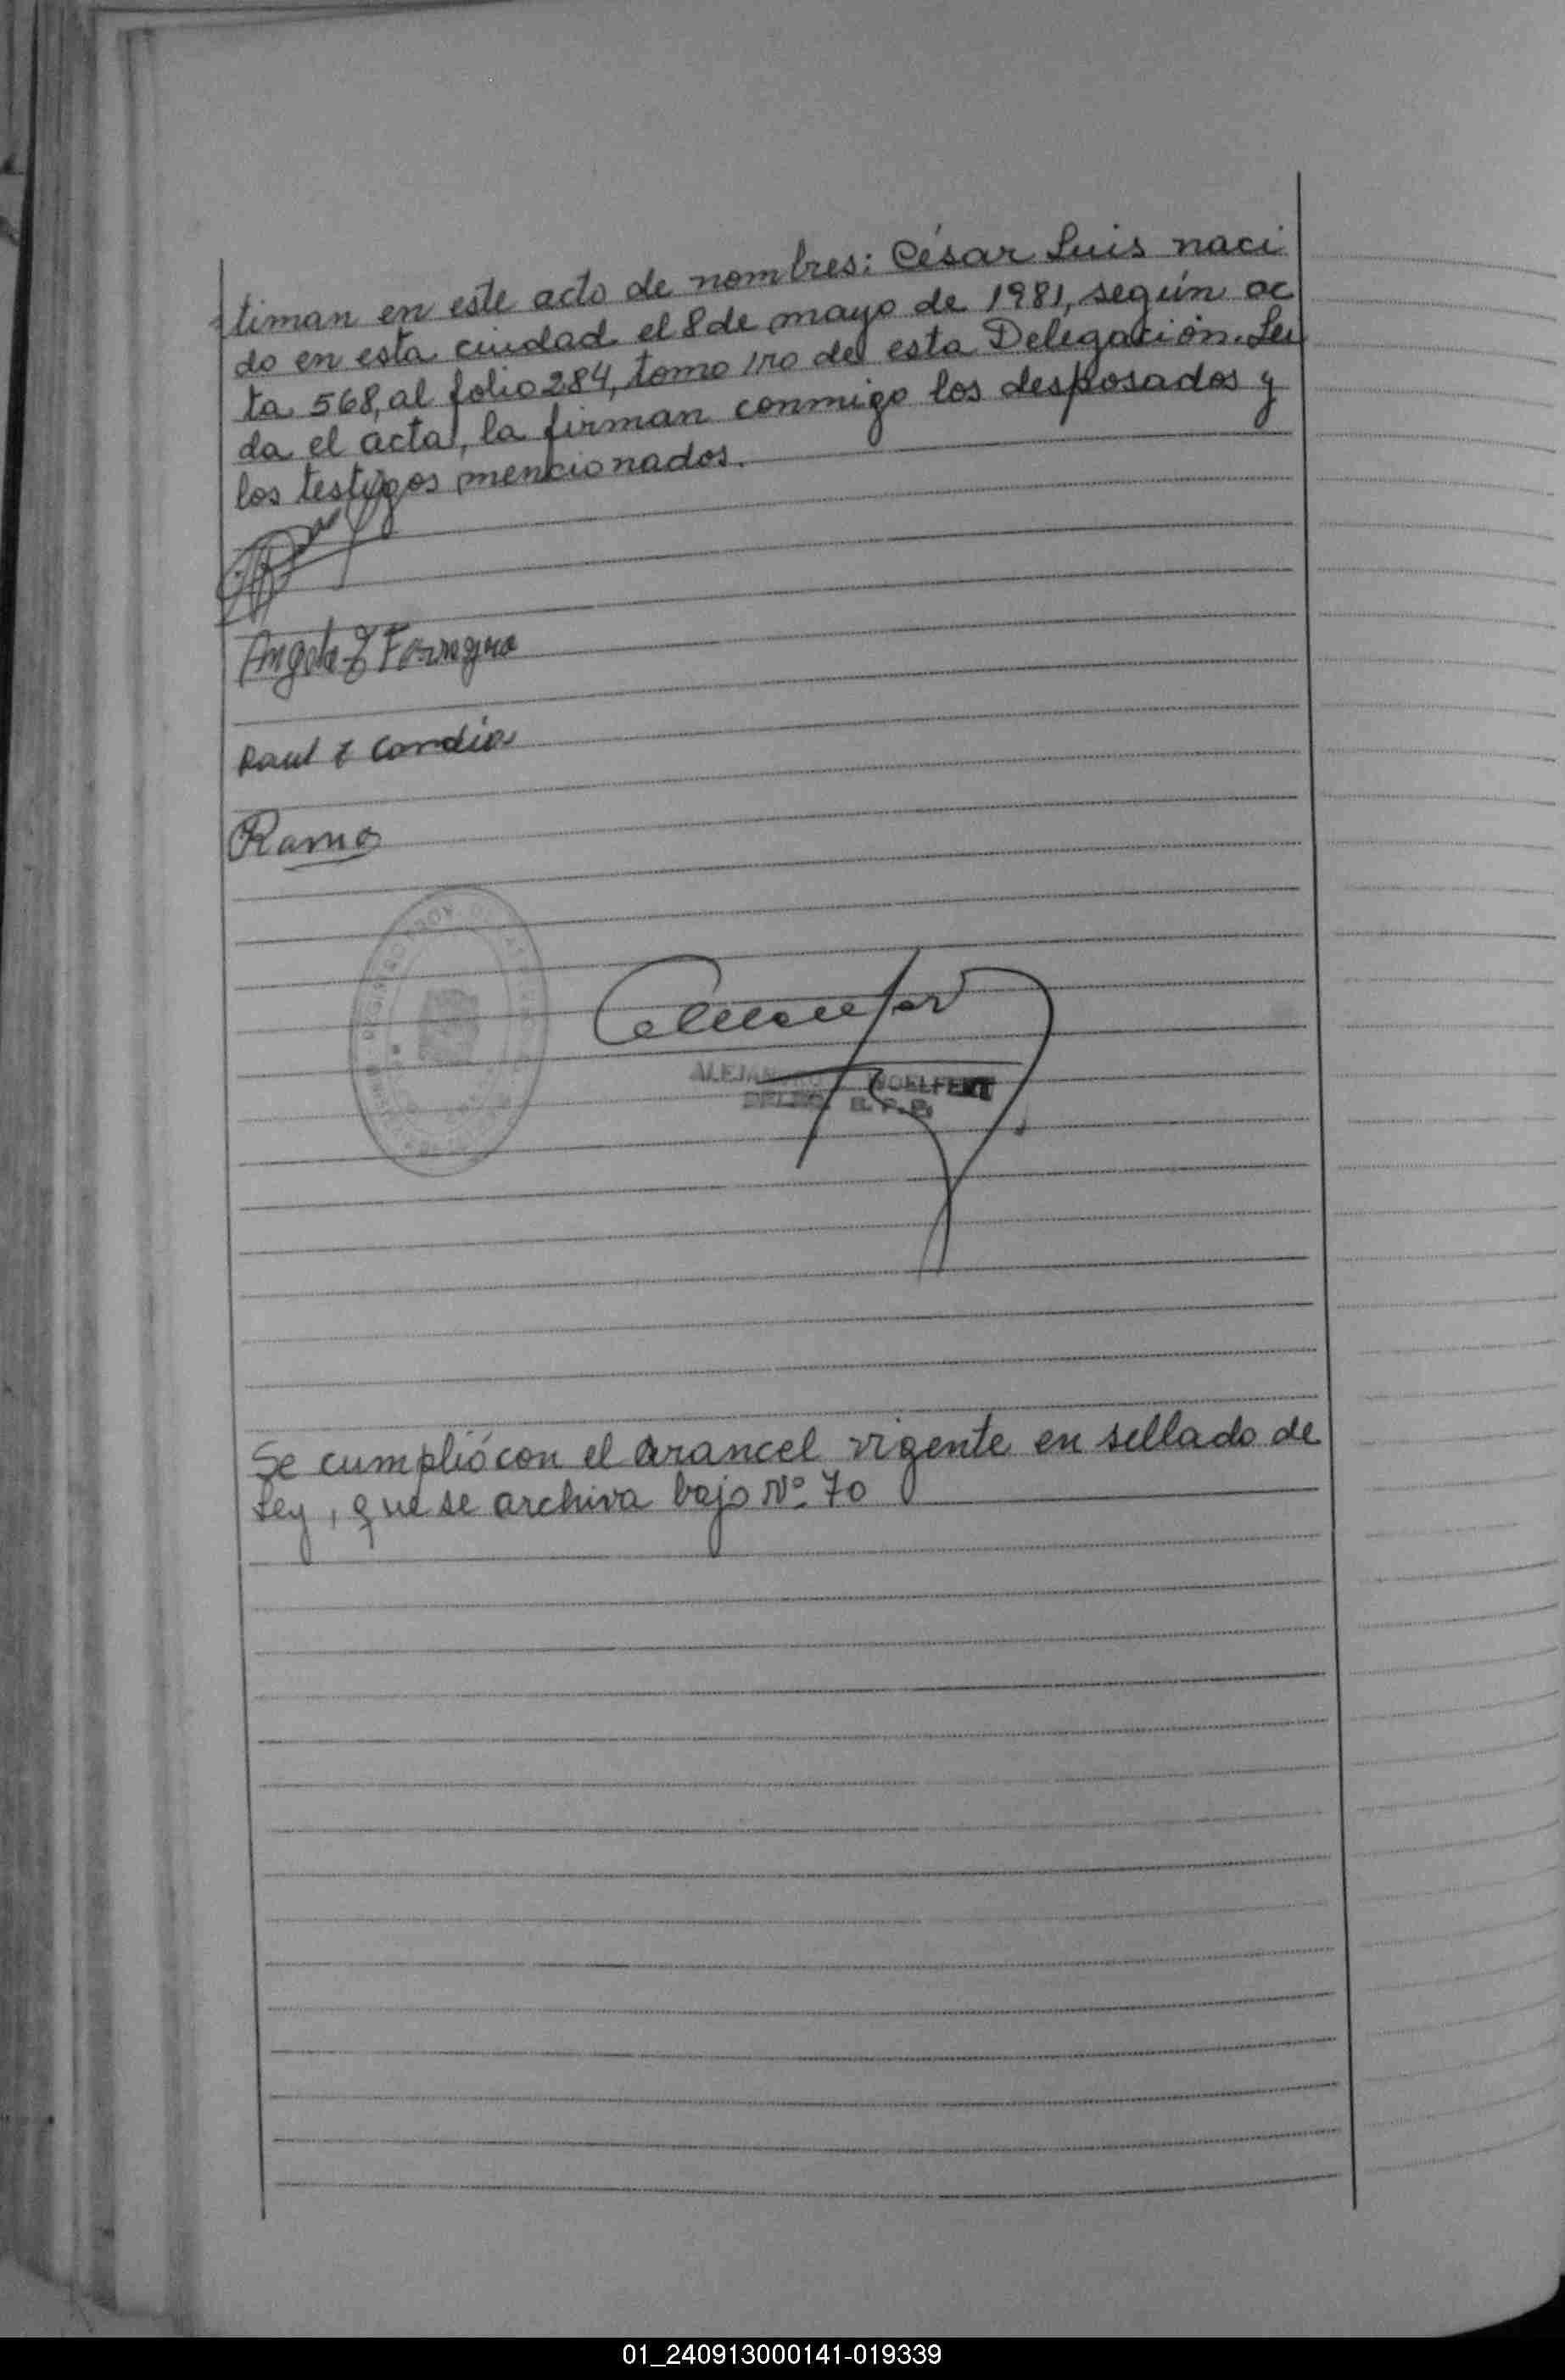 timan en este acto de nombres: César Luis naci
do en esta ciudad el 8 de mayo de 1981, según ac
ta 568, al folio 284, tomo 1ro de esta Delegación. Leí
da el acta, la firman conmigo los desposados y
los testigos mencionados.
Raul
Ramo
ALEJANDRO WOELFERT
DELEG. R. P. P.
Se cumplió con el arancel vigente en sellado de
Ley, que se archiva bajo Nº 70
01_240913000141-019339